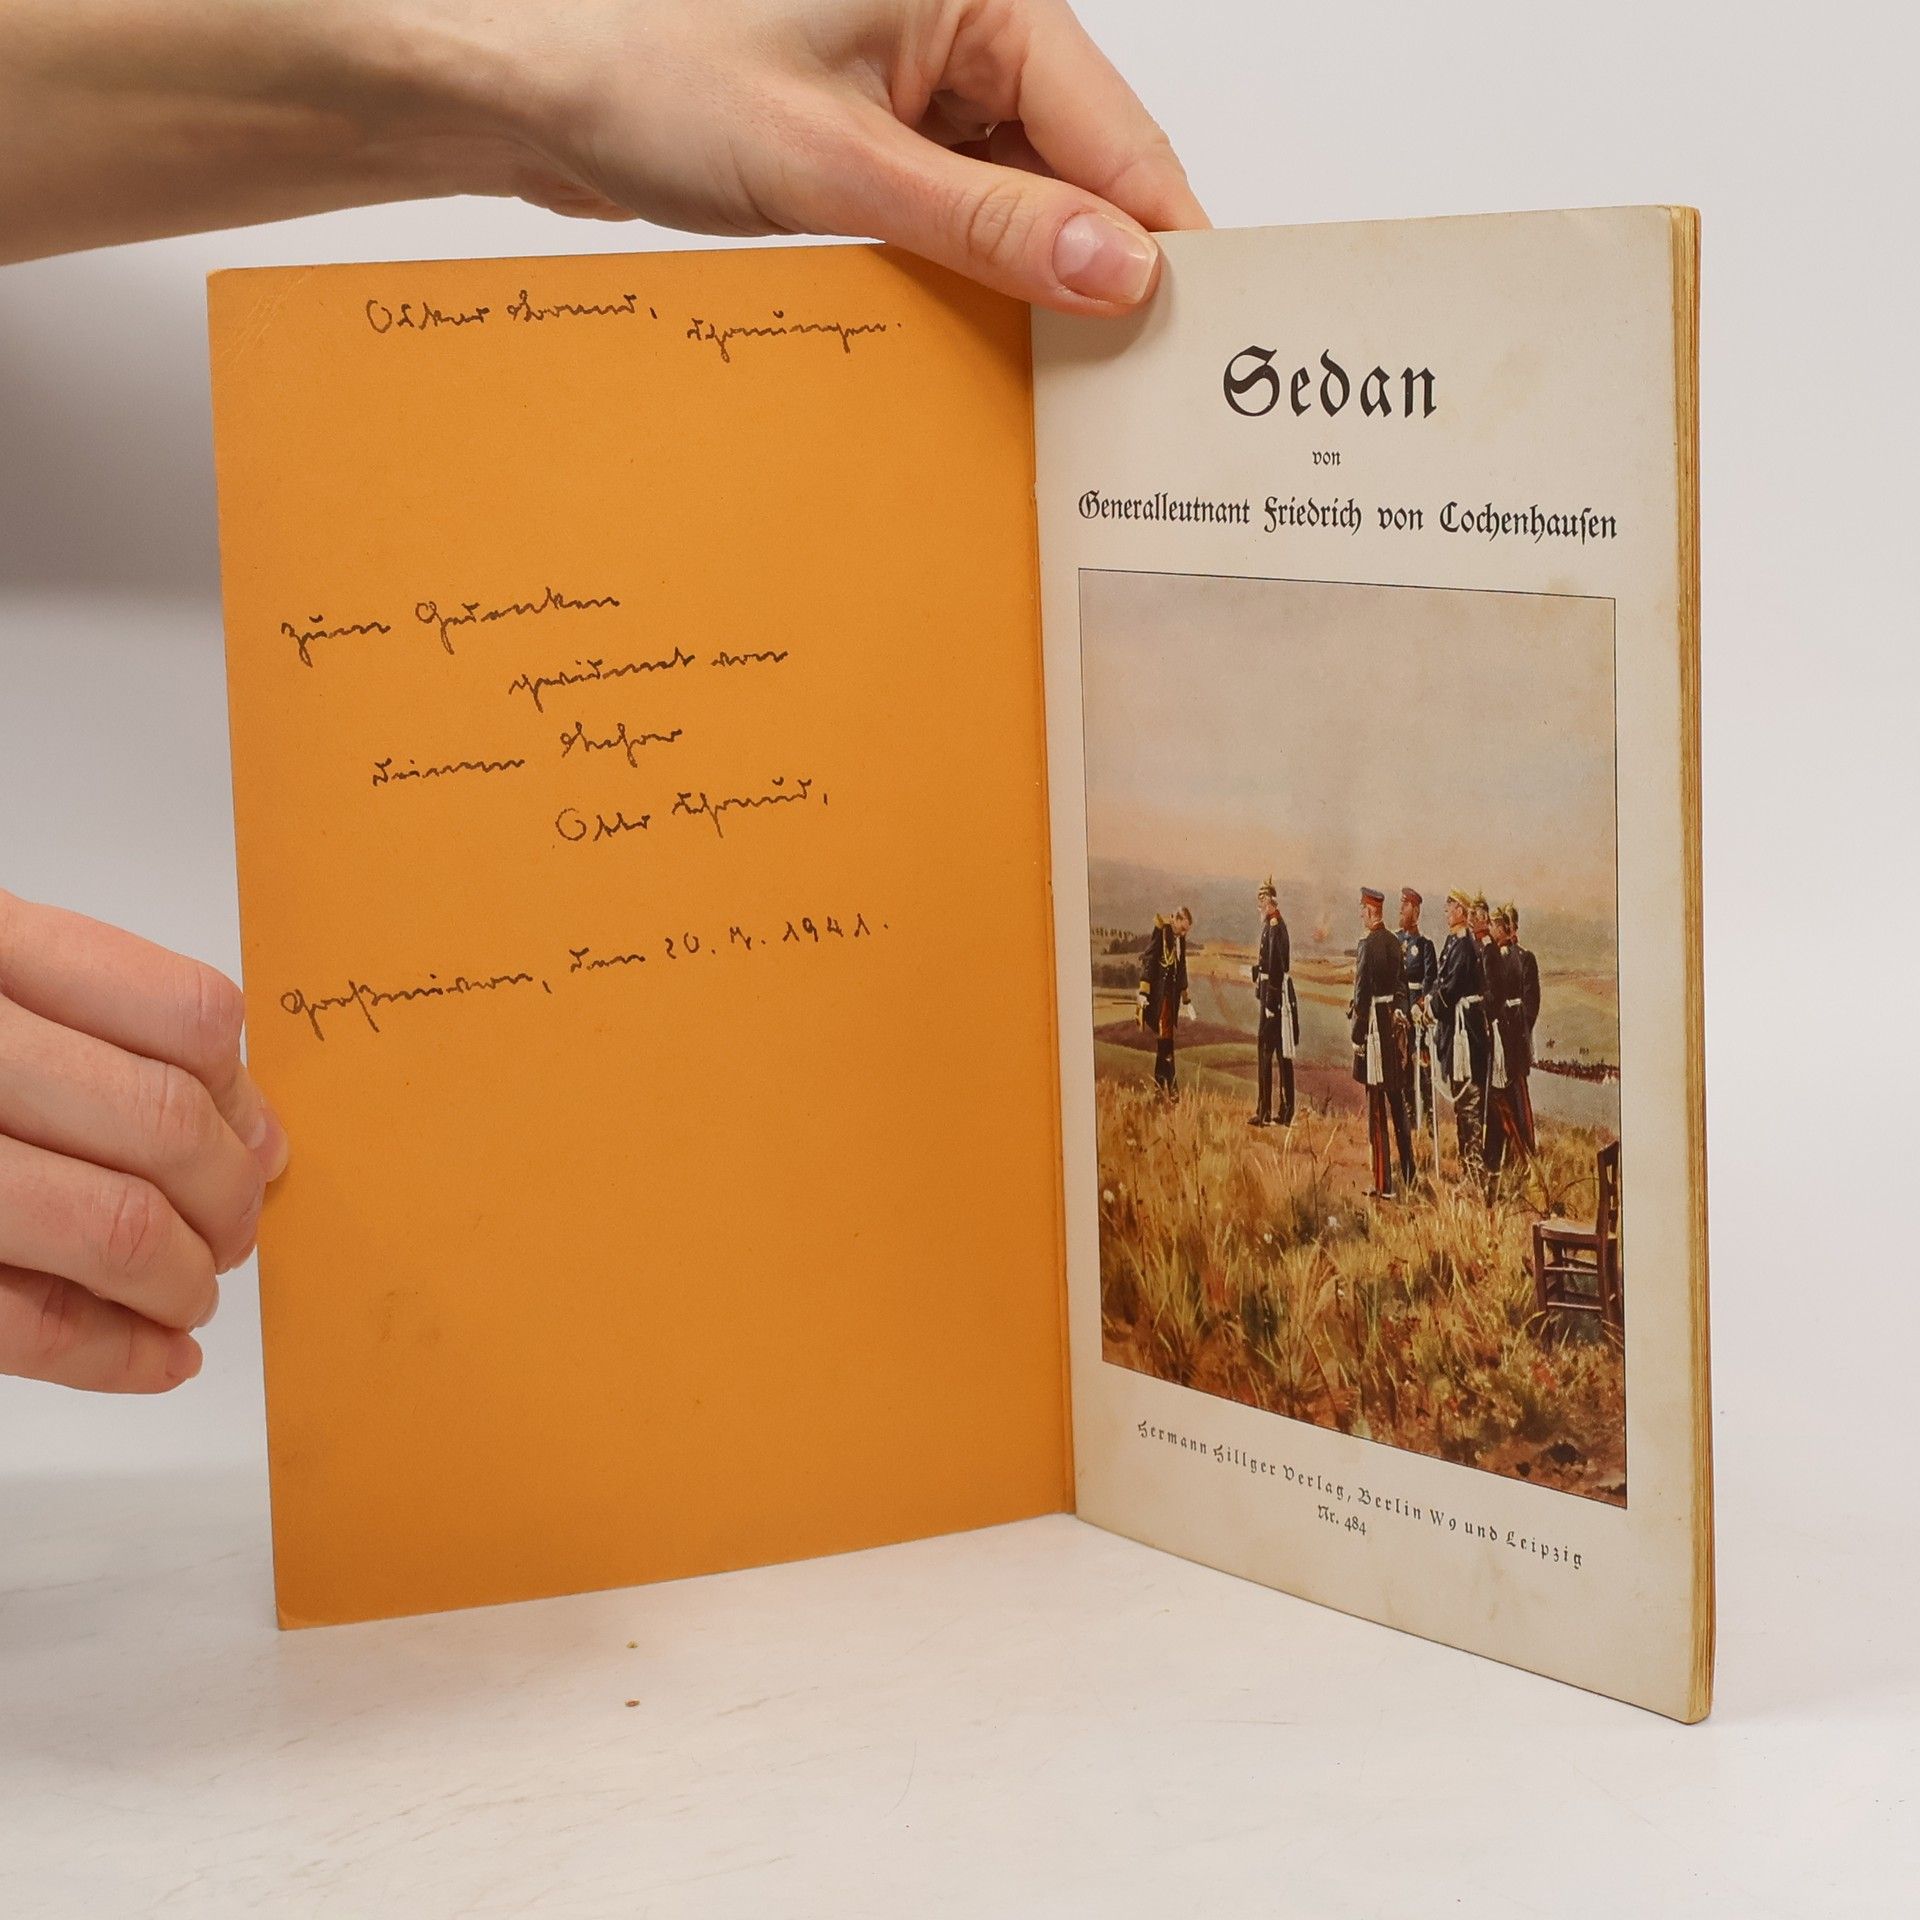 Oskar
Zum Gedenken
gewidmet von
Deinem
Otto
den 20. 7. 1941.
Sedan
von
Generalleutnant Friedrich von Cochenhausen
Hermann Hillger Verlag, Berlin W 9 und Leipzig
Nr. 484